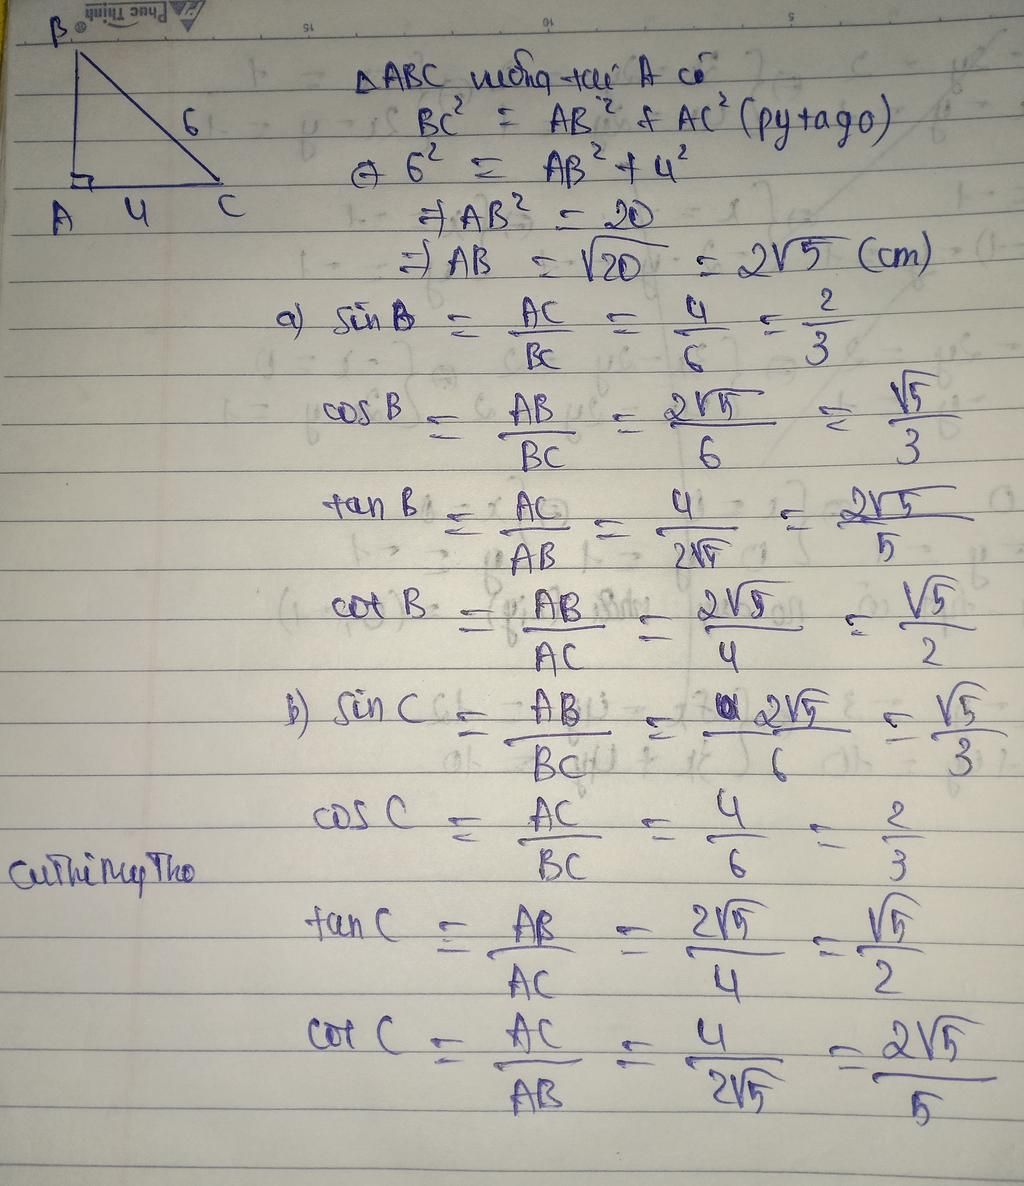 Phuc Thinh
15
10
5
B
6
A 4 C
△ABC vuông tại A có
BC² = AB² + AC² (pytago)
⇔ 6² = AB² + 4²
⇒ AB² = 20
⇒ AB = √20 = 2√5 (cm)
a) Sin B = AC/BC = 4/6 = 2/3
cos B = AB/BC = 2√5/6 = √5/3
tan B = AC/AB = 4/2√5 = 2√5/5
cot B = AB/AC = 2√5/4 = √5/2
b) Sin C = AB/BC = 2√5/6 = √5/3
cos C = AC/BC = 4/6 = 2/3
tan C = AB/AC = 2√5/4 = √5/2
cot C = AC/AB = 4/2√5 = 2√5/5